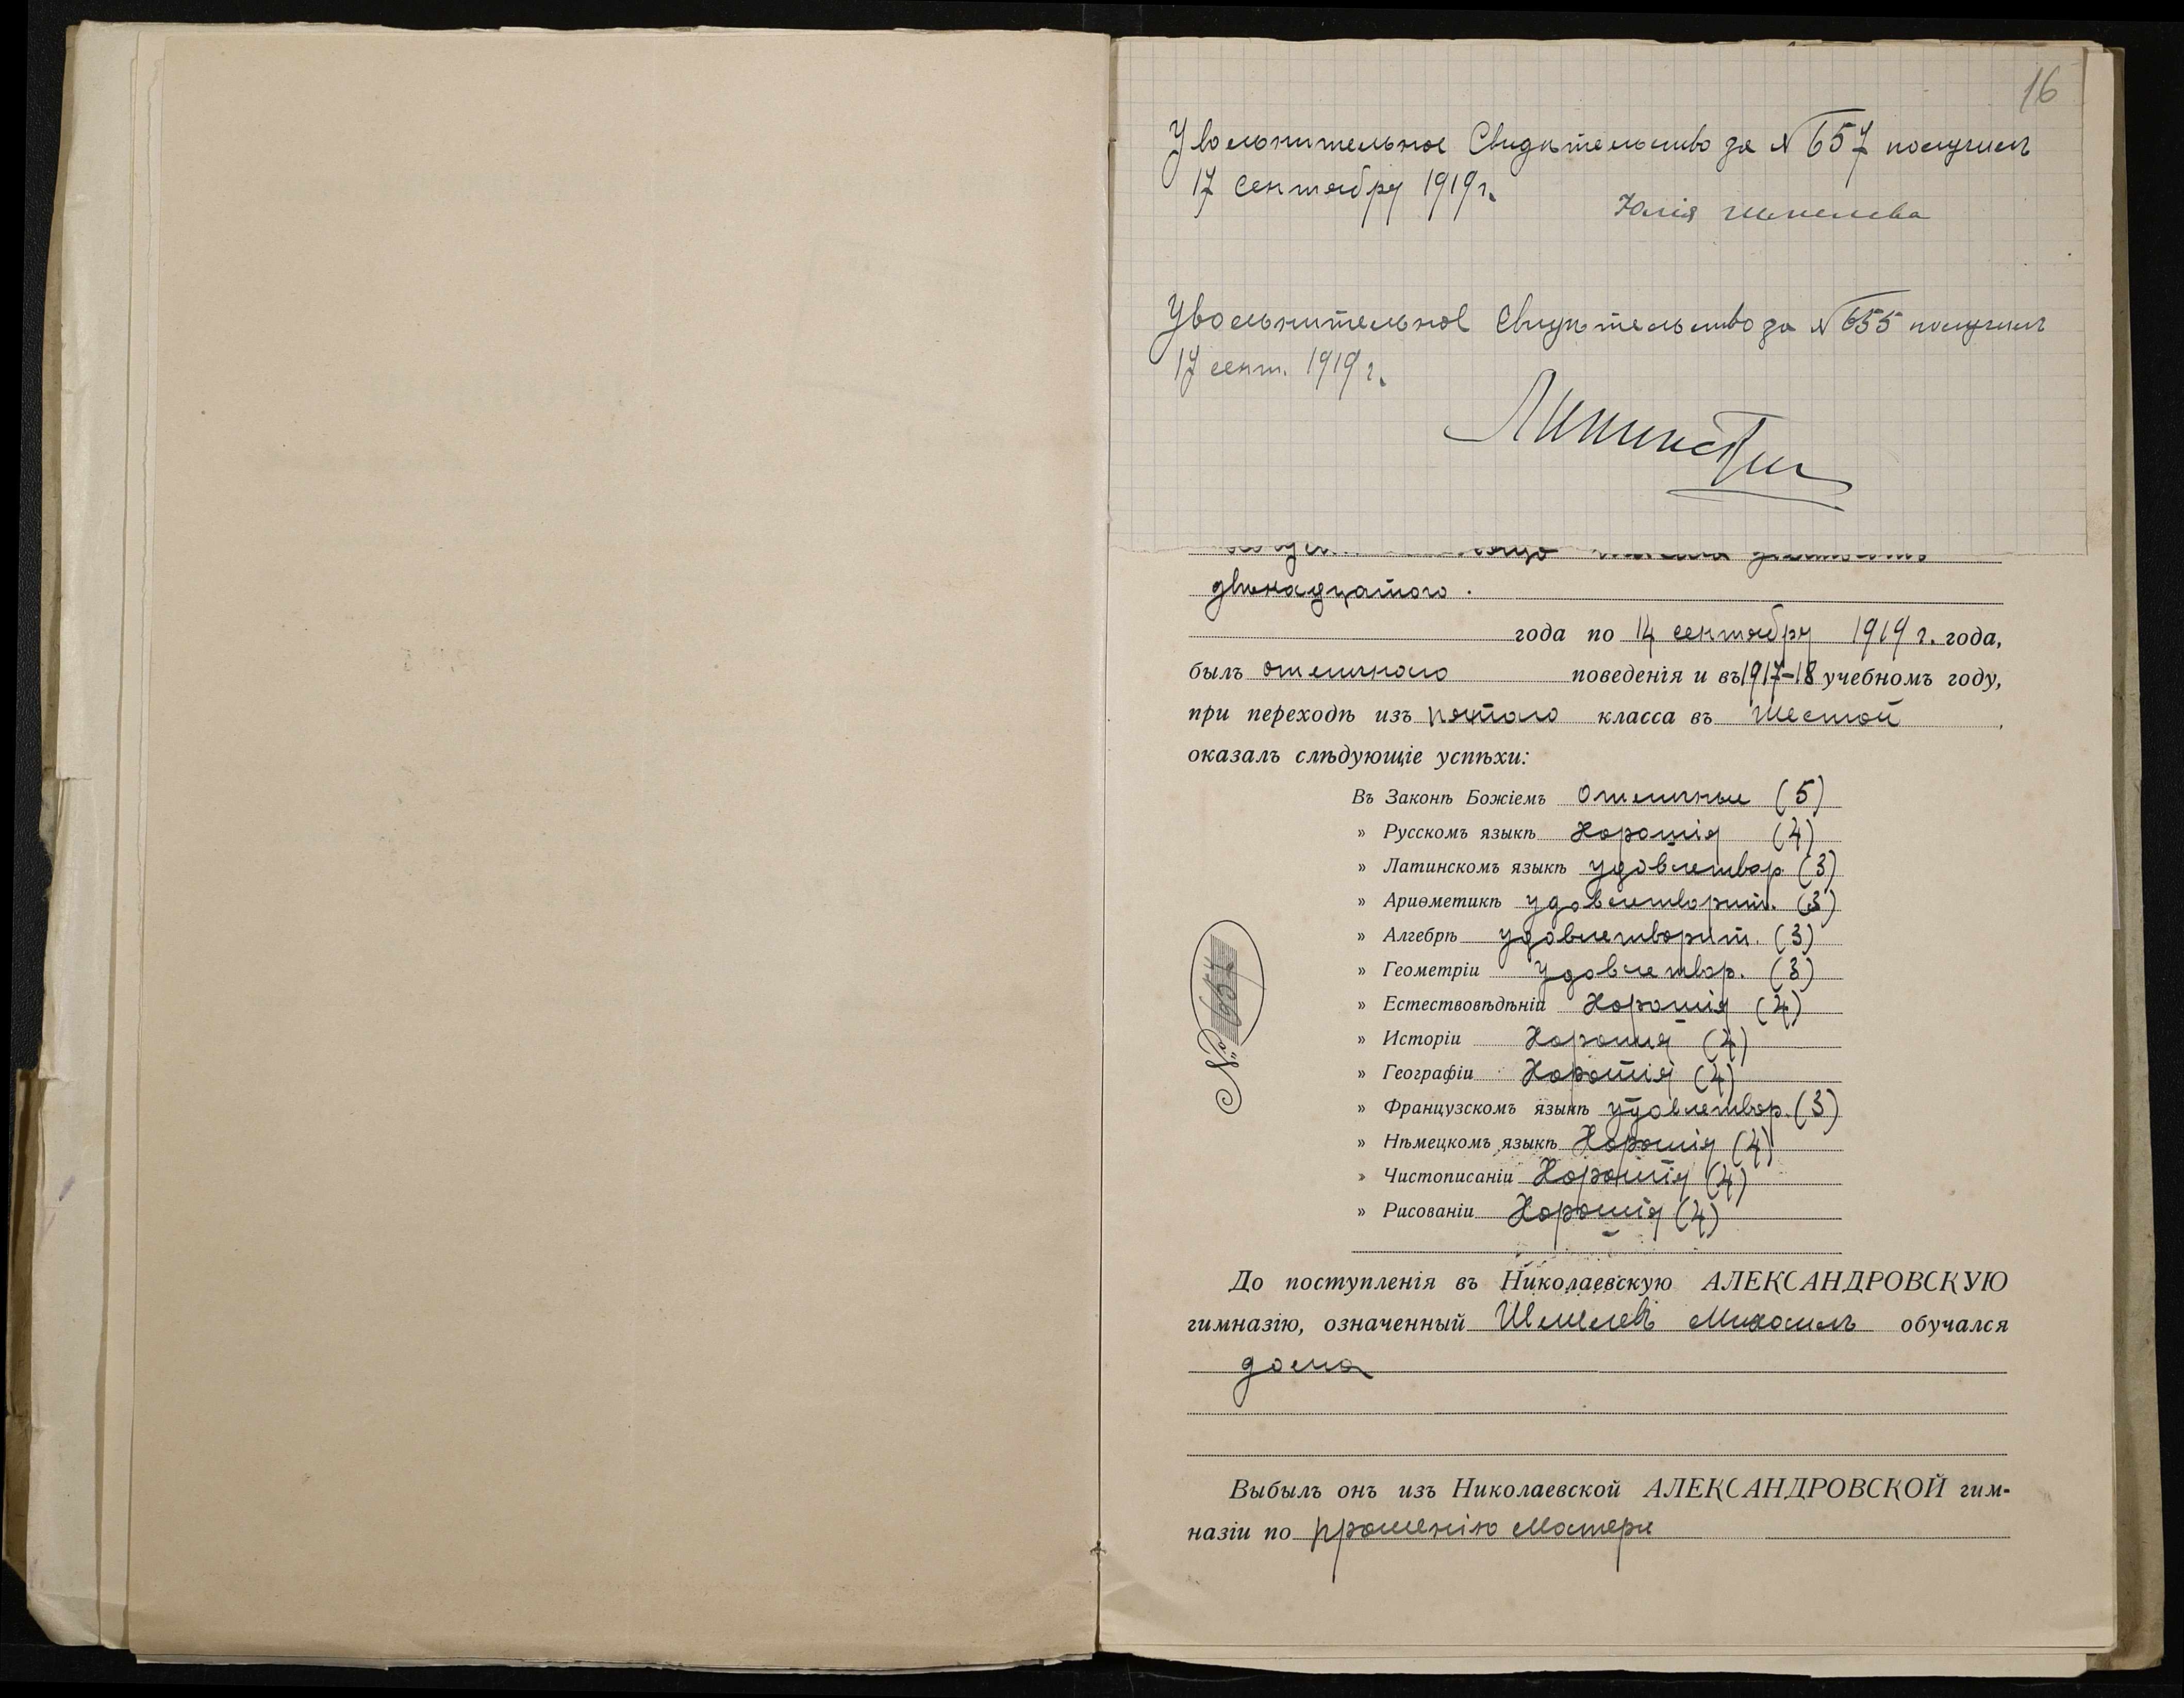 16
Увольнительное Свидѣтельство за № 657 получилъ
17 сентября 1919 г.
Юлія Шмелева
Увольнительное Свидѣтельство за № 655 получилъ
17 сент. 1919 г.
двѣнадцатого.
года по 14 сентября 1919 г. года,
былъ отличнаго поведенія и въ 1917-18 учебномъ году,
при переходѣ изъ пятаго класса въ шестой,
оказалъ слѣдующіе успѣхи:
Въ Законѣ Божіемъ Отличные (5)
» Русскомъ языкѣ Хорошія (4)
» Латинскомъ языкѣ удовлетвор. (3)
» Ариѳметикѣ удовлетворит. (3)
» Алгебрѣ удовлетворит. (3)
» Геометріи удовлетвор. (3)
» Естествовѣдѣніи Хорошія (4)
» Исторіи Хорошія (4)
» Географіи Хорошія (4)
» Французскомъ языкѣ удовлетвор. (3)
» Нѣмецкомъ языкѣ Хорошія (4)
» Чистописаніи Хорошія (4)
» Рисованіи Хорошія (4)
№ 657
До поступленія въ Николаевскую АЛЕКСАНДРОВСКУЮ
гимназію, означенный Шмелевъ Михаилъ обучался
дома
Выбылъ онъ изъ Николаевской АЛЕКСАНДРОВСКОЙ гим-
назіи по прошенію Матери